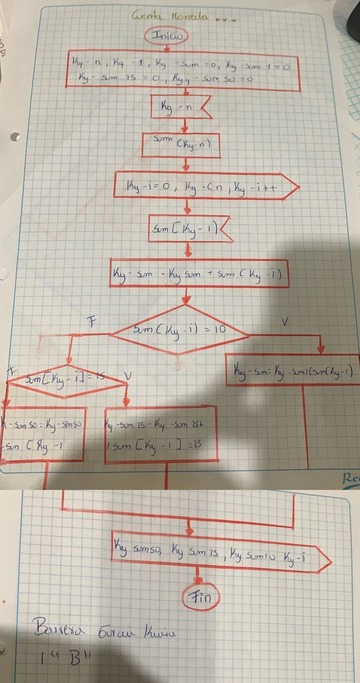 Cuenta Moneda...
Inicio
Ky-n, Ky-1, Ky-sum=0, Ky-sum 1=0
Ky-sum 25=0, Ky4-sum 50=0
Ky-n
sum (Ky-n)
Ky-i=0, Ky-Cn, Ky-i++
sum [Ky-1]
Ky-sum-Ky sum + sum (Ky-1)
F
Sum (Ky-i)=10
V
F
sum[Ky-i]=15
V
Ky-sum=Ky-sum1(sum(Ky-1)
-sum 50=Ky-sum50
-sum (Ky-1
Ky-sum 25-Ky-sum 25+
sum [Ky-1]=25
Ky sum50, Ky sum 25, Ky sum10 Ky-i
Fin
1° "B"